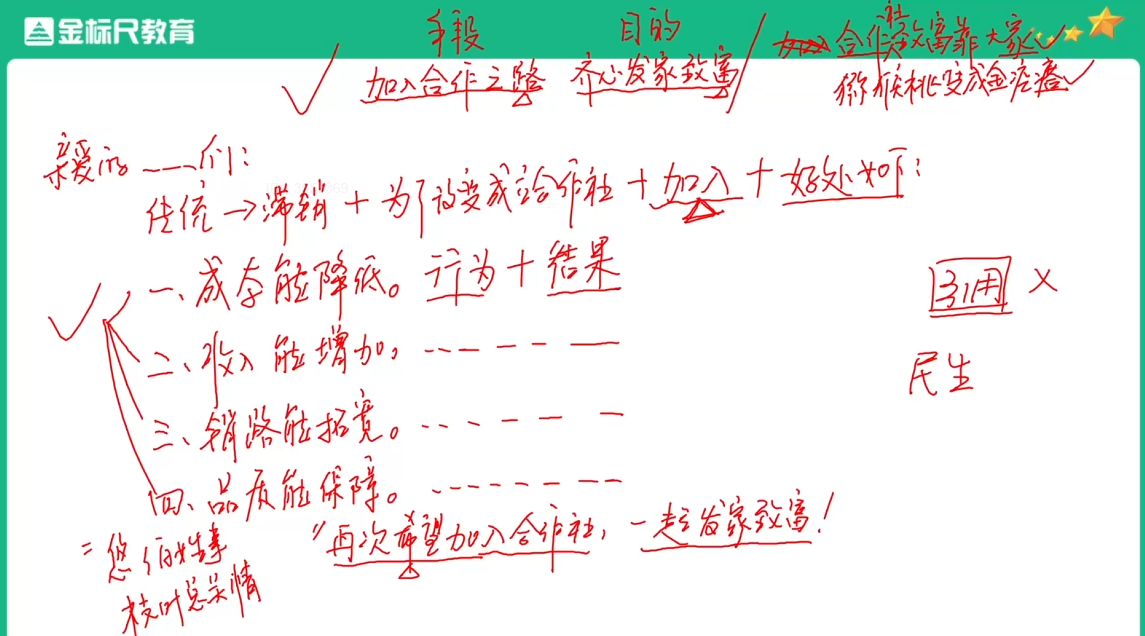 金标尺教育
手段 目的
加入合作之路 齐心发家致富 / 合作社致富靠大家
猕猴桃变成金疙瘩
亲爱的____们：
传统→滞销+为了改变成立合作社+加入+好处如下：
一、成本能降低。行为+结果
引用 ×
二、收入能增加,
民生
三、销路能拓宽。
四、品质能保障。
"再次希望加入合作社，一起发家致富！
= 些小吾曹
枝叶总关情